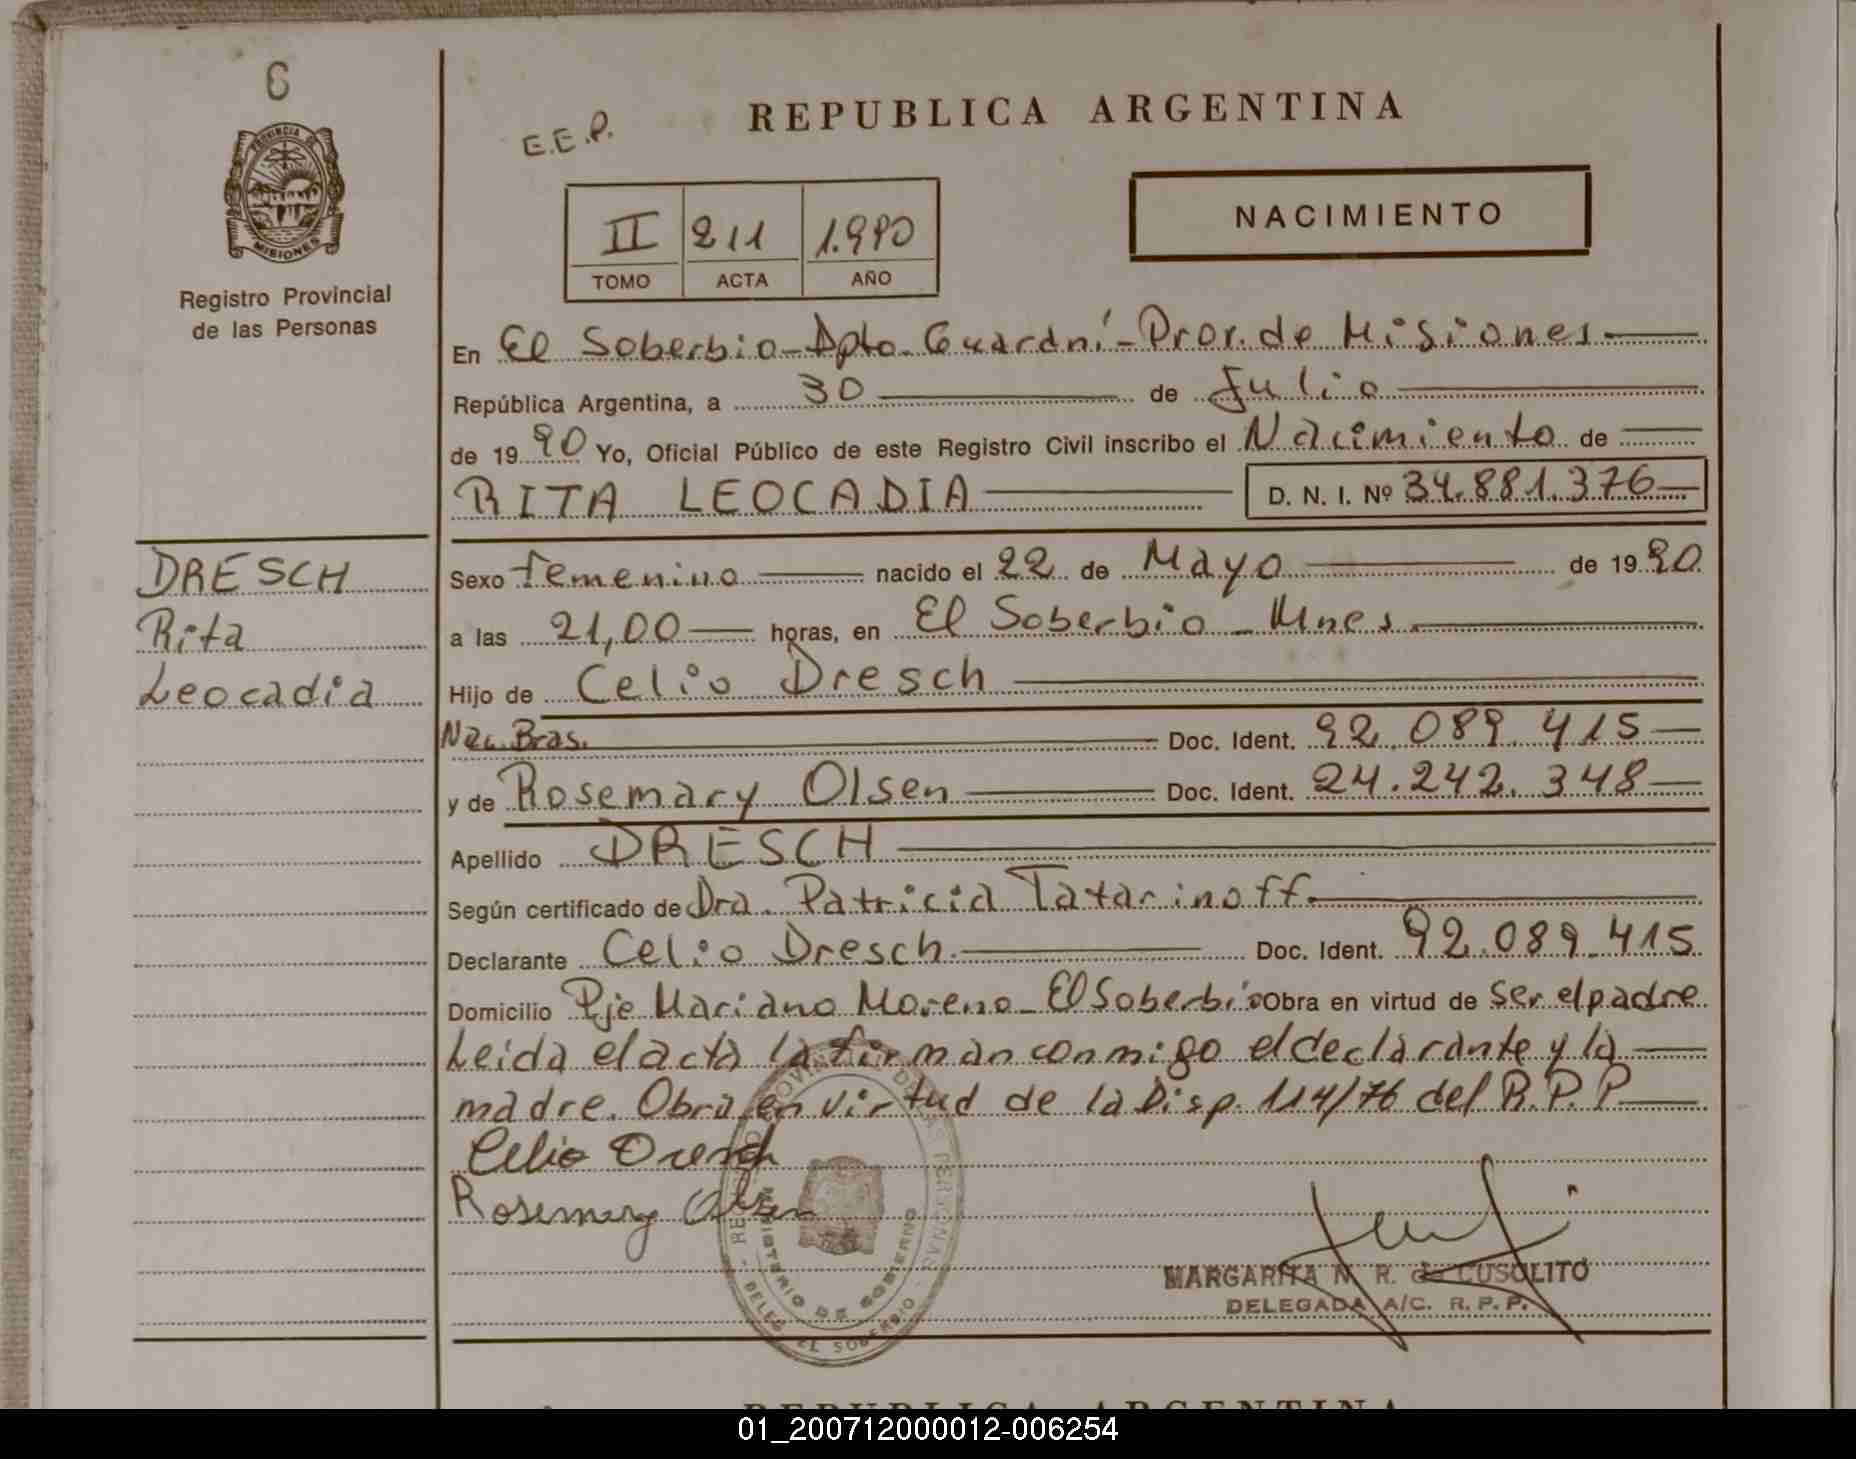 6
E.E.P.
REPUBLICA ARGENTINA
PROVINCIA DE
MISIONES
Registro Provincial
de las Personas
II 211 1.990
TOMO ACTA AÑO
NACIMIENTO
En El Soberbio - Dpto. Guaraní - Prov. de Misiones
República Argentina, a 30 de Julio
de 1990 Yo, Oficial Público de este Registro Civil inscribo el Nacimiento de
RITA LEOCADIA D. N. I. Nº 34.881.376
DRESCH
Rita
Leocadia
Sexo femenino nacido el 22 de Mayo de 1990
a las 21,00 horas, en El Soberbio - Mnes.
Hijo de Celio Dresch
Nac. Bras. Doc. Ident. 92.089.415
y de Rosemary Olsen Doc. Ident. 24.242.348
Apellido DRESCH
Según certificado de Dra. Patricia Tatarinoff.
Declarante Celio Dresch. Doc. Ident. 92.089.415
Domicilio Pje Mariano Moreno - El Soberbio Obra en virtud de ser el padre
Leida el acta la firman conmigo el declarante y la
madre. Obra en virtud de la Disp. 114/76 del R.P.P.
Celio Dresch
Rosemary Olsen
MINISTERIO DE GOBIERNO
MARGARITA N. R. de CUSOLITO
DELEGADA A/C. R. P. P.
REPUBLICA ARGENTINA
01_200712000012-006254